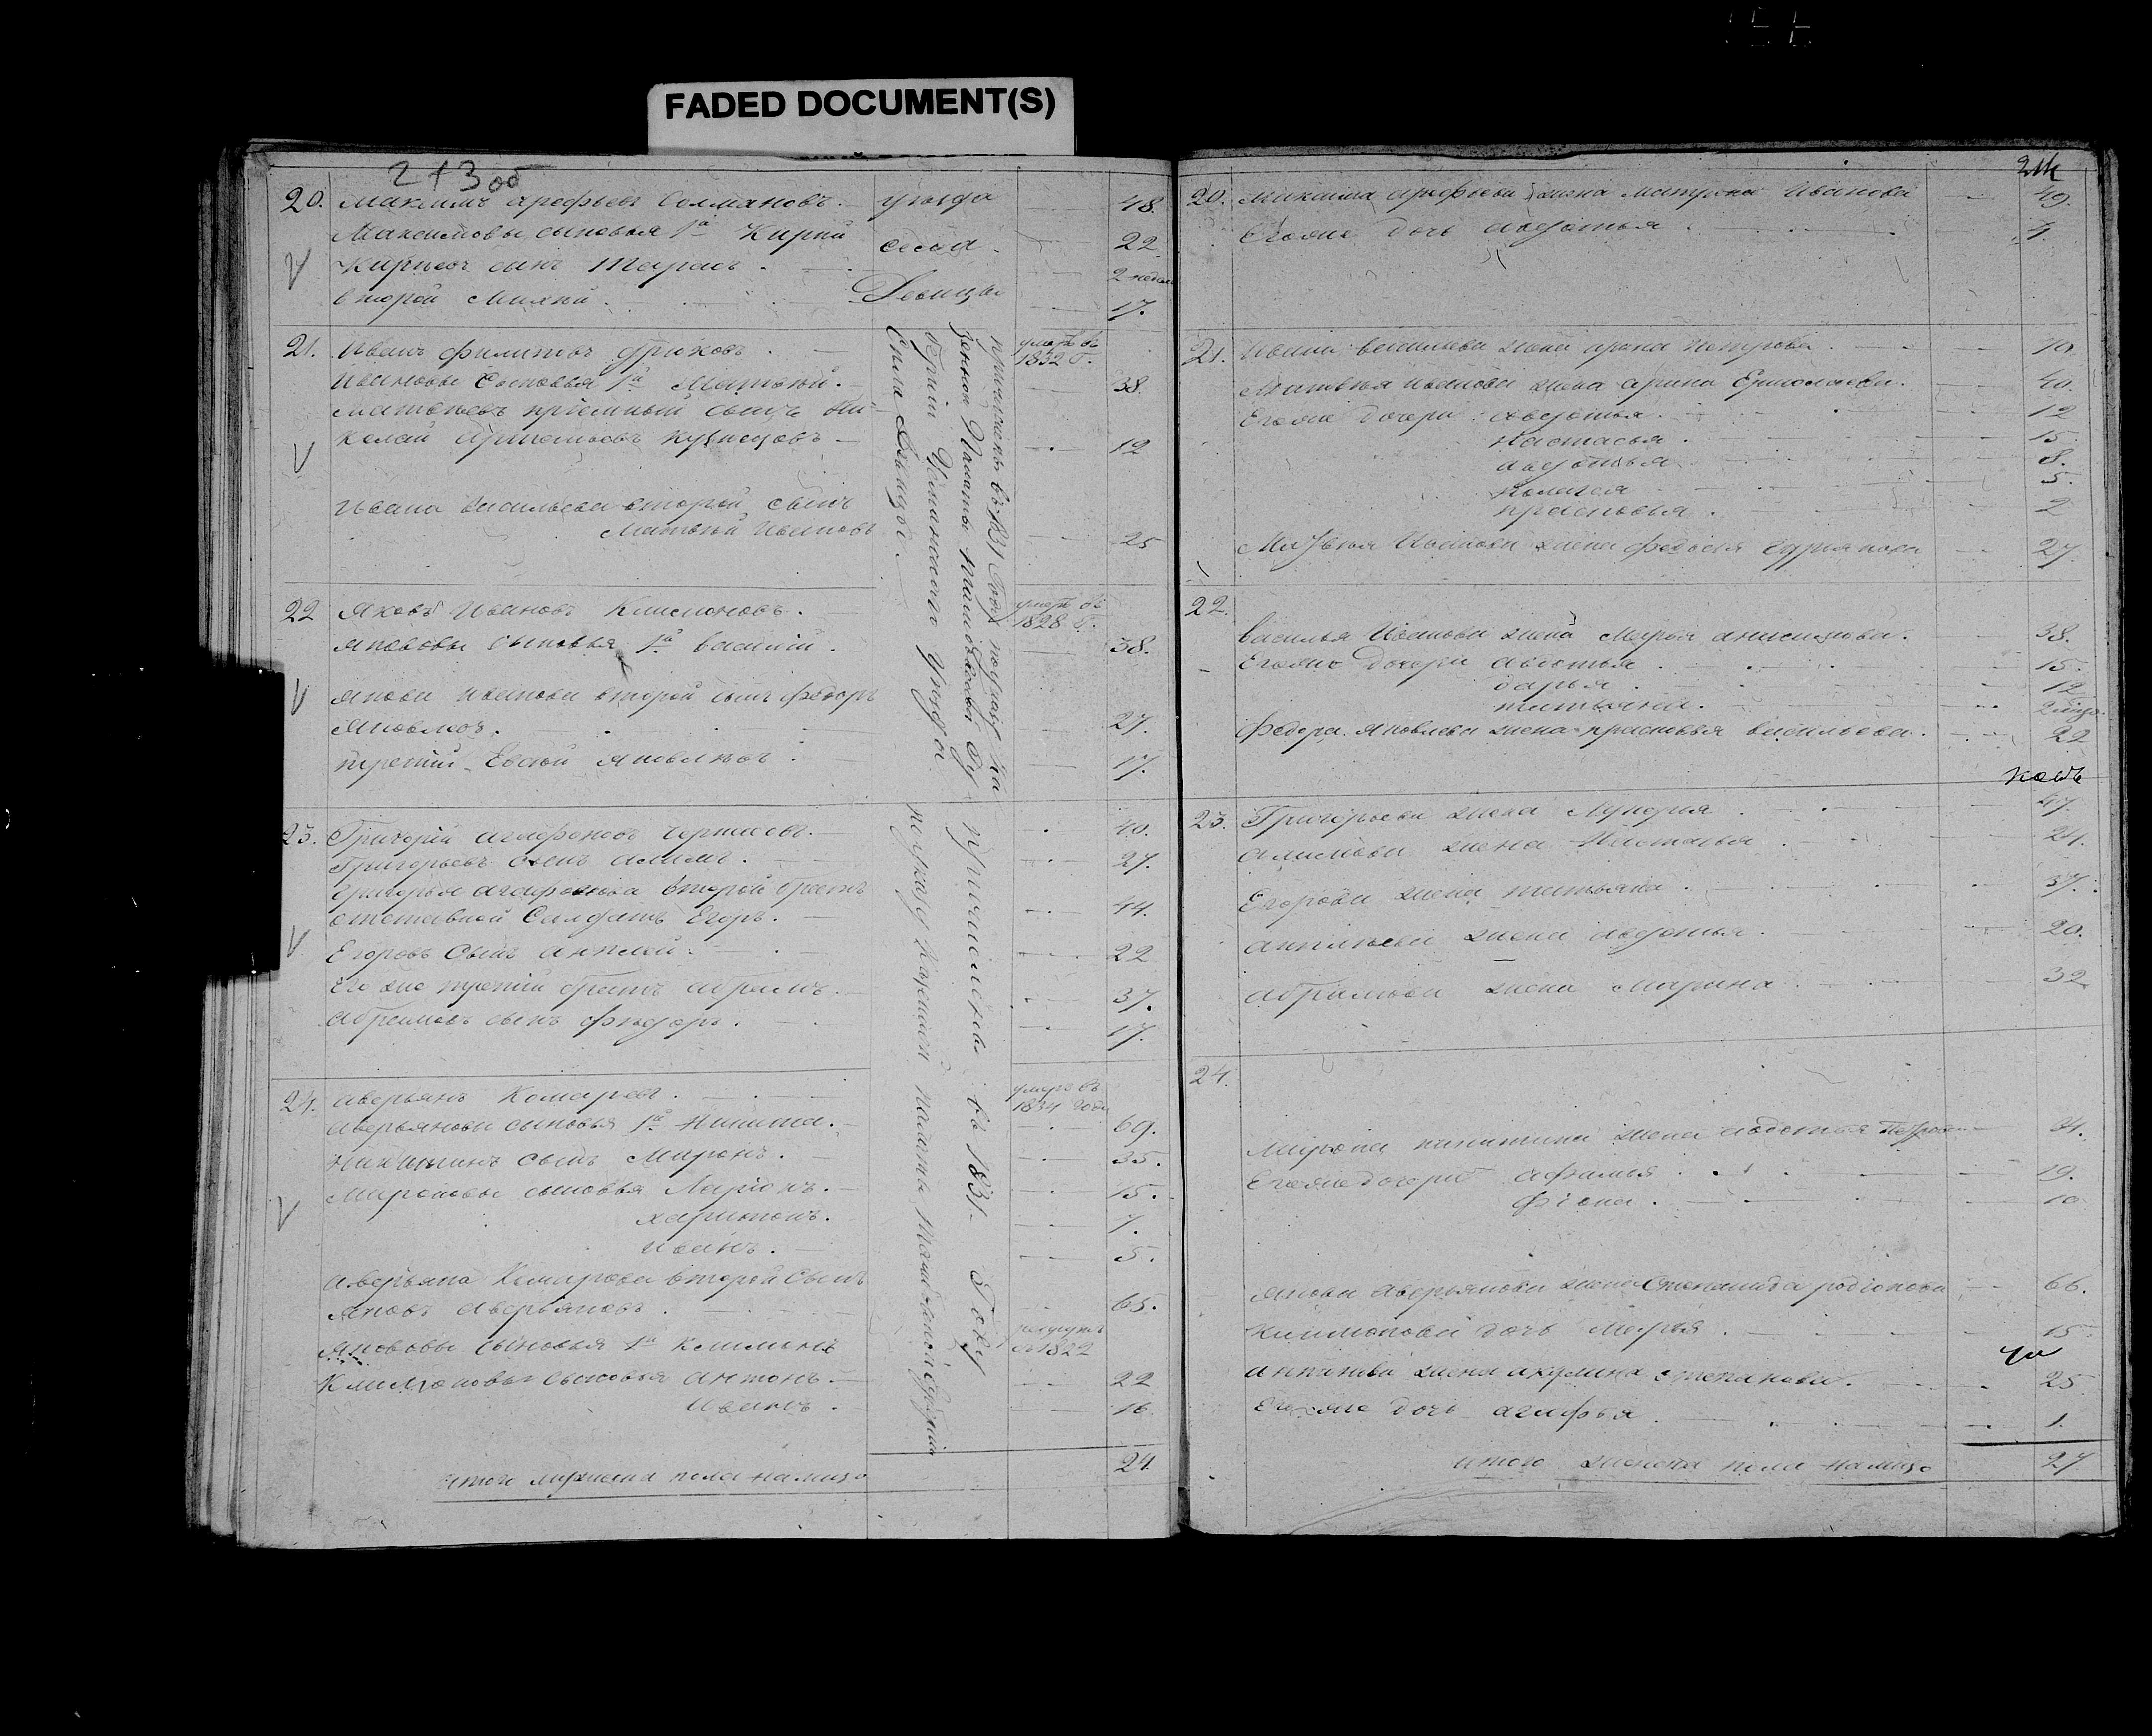 FADED DOCUMENT(S)
213 об
20. Максимъ Арефьевъ Солмановъ. уѣзда 48.
Максимовы сыновья 1й Кирѣй села 22
Кирѣевъ сынъ Тарасъ. 2 недел
второй Михѣй. Девицы 17.
21. Иванъ Филиповъ умеръ въ 1832 г.
Ивановы сыновья 1й Матвѣй. 38.
Матвѣевъ пріемный сынъ Ни
колай Артемьевъ Кузнецовъ 12
Ивана второй сынъ
Матвѣй Ивановъ 25
22 Яковъ Ивановъ Климоновъ. умеръ въ 1828 г.
Якововы сыновья 1й Василій. 38.
Якова Иванова второй сынъ Федоръ
Яковлевъ. 27.
третій Евсѣй Яковлевъ 17.
23. Григорій Агафоновъ 40.
Григорьевъ сынъ Алимъ. 27.
Григорья Агафонова второй братъ
отставной Салдатъ Егоръ. 44.
Егоровъ сынъ Анплей. 22
Его же третій братъ Абрамъ. 37.
Абрамовъ сынъ Фѣдоръ. 17.
24. Аверьянъ Комаревъ. умеръ въ 1834 году
Аверьяновы сыновья 1й Никита. 69.
Никитинъ сынъ Миронъ. 35.
Мироновы сыновья Ларіонъ. 15.
Харитонъ. 7.
Иванъ. 5.
Аверьяна Комарова второй сынъ
Яковъ Аверьяновъ. 65.
Якововы сыновья 1й Климонъ 1822
Климоновы сыновья Антонъ. 22
Иванъ. 16
итого мужеска пола на лицо 24
причислены въ 1831 году по указу ка
зенной Палаты тамбовской гу
берніи Усманскаго уѣзда
Села Девицы.
причислены въ 1831 Году
по указу казенной палаты тамбовской губерніи
214
20. Максима Арефьева жена Матрена Иванова 49.
Егоже дочь Авдотья
21. Ивана Васильева жена Арина Петрова 70
Матвѣя Иванова жена Арина Ермолаева. 40.
Егоже дочери Авдотья. 12
Настасья. 15
Авдотья 8.
Пелагея 5.
Прасковья. 2
Матвѣя Иванова жена Федосья 27.
22.
Василья Иванова жена Марья Анисимова. 38.
Егоже дочери Авдотья 15.
Дарья 12
Татьяна.
Федора Яковлева жена Прасковья Васильева. 22
23. Григорьева жена Лукерья 47.
Алимова жена Настасья 24.
Егорова жена Татьяна 37.
Анплеева жена Авдотья 20.
Абрамова жена Марина 32
24.
Мирона Никитина жена Авдотья
Егоже дочери Афимья 19.
Фіона 10
Якова Аверьянова жена Степанида Родіонова 66.
Климонова дочь Марья 15
Антонова жена Акулина Степанова. 25
Егоже дочь Агафья 1.
итого женска пола на лицо 27